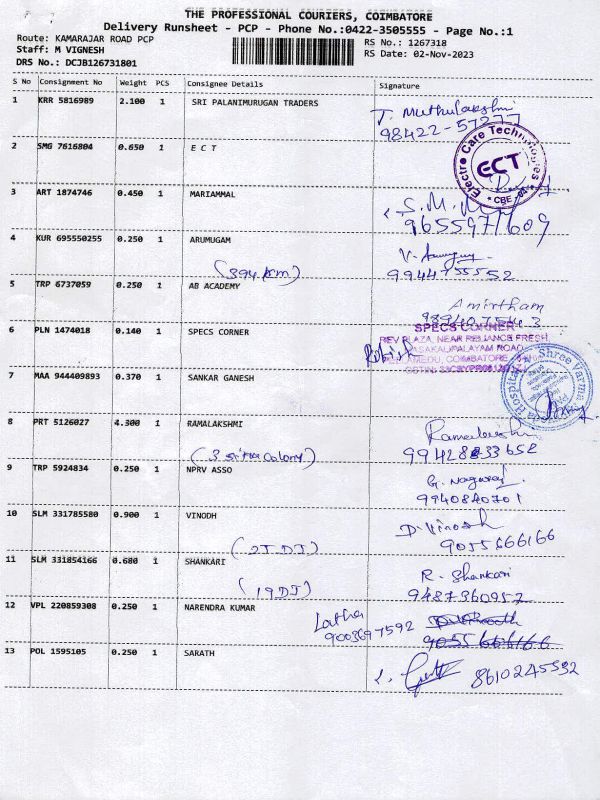 THE PROFESSIONAL COURIERS, COIMBATORE
Delivery Runsheet - PCP - Phone No.:0422-3505555 - Page No.:1
Route: KAMARAJAR ROAD PCP
RS No.: 1267318
Staff: M VIGNESH
RS Date: 02-Nov-2023
DRS No.: DCJB126731801
S No Consignment No Weight PCS Consignee Details Signature
1 KRR 5816989 2.100 1 SRI PALANIMURUGAN TRADERS
T. Muthulakshmi
98422-57277
2 SMG 7616804 0.650 1 E C T
Electro Care Technologies
ECT
3 ART 1874746 0.450 1 MARIAMMAL
S. M.
9655971609
4 KUR 695550255 0.250 1 ARUMUGAM
V.
9944755552
5 TRP 6737059 0.250 1 AB ACADEMY
Amirtham
6 PLN 1474018 0.140 1 SPECS CORNER
SPECS CORNER
PLAZA, NEAR RELIANCE FRESH
ROAD
COIMBATORE
7 MAA 944409893 0.370 1 SANKAR GANESH
Shree Varma
Hospital
8 PRT 5126027 4.300 1 RAMALAKSHMI
Ramalakshmi
9 TRP 5924834 0.250 1 NPRV ASSO
G. Nagaraj
9940840701
10 SLM 331785580 0.900 1 VINODH
D. Vinodh
9055666166
11 SLM 331854166 0.680 1 SHANKARI
R. Shankari
9487360952
12 VPL 220859308 0.250 1 NARENDRA KUMAR
Latha
9003697592
13 POL 1595105 0.250 1 SARATH
8610245532